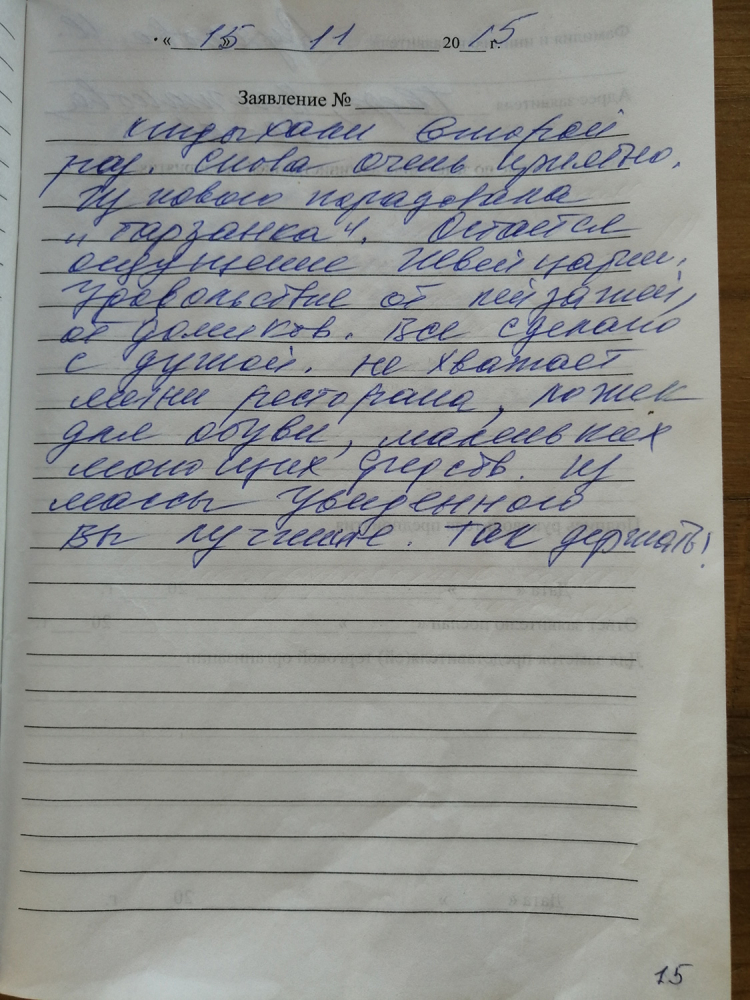 « 15 » 11 20 15 г.
Заявление №
второй
раз. Снова очень приятно.
Из нового порадовала
„Тарзанка“. Остается
ощущение Швейцарии,
удовольствие от пейзажей,
от домиков. Все сделано
с душой. Не хватает
меню ресторана, ложек
для обуви, маленьких
моющих средств. Из
массы увиденного
Вы лучшие. Так держать!
15